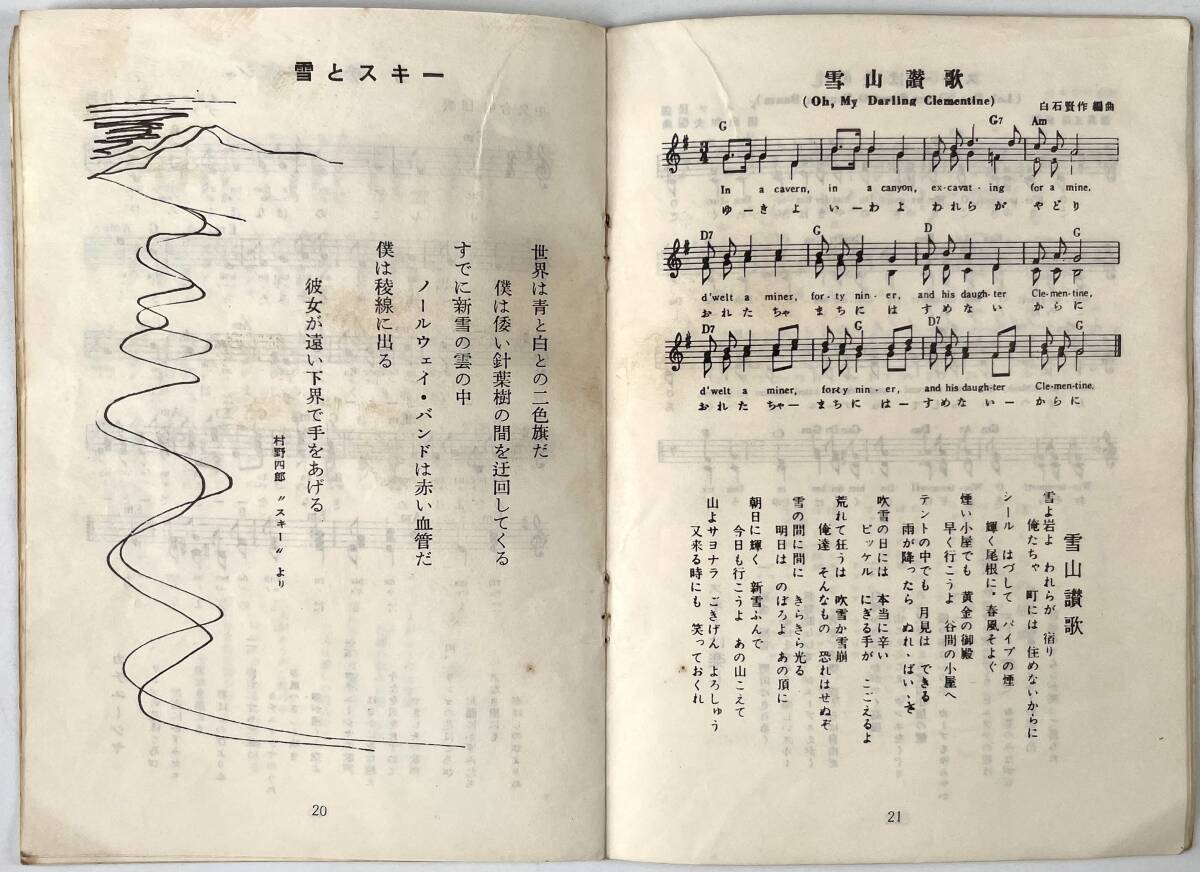 雪とスキー
世界は青と白との二色旗だ
僕は倭い針葉樹の間を迂回してくる
すでに新雪の雲の中
ノールウェイ・バンドは赤い血管だ
僕は稜線に出る
彼女が遠い下界で手をあげる
村野四郎 〝スキー〟 より
20
雪山讃歌
(Oh, My Darling Clementine)
白石賢作 編曲
G G7 Am
3/4
In a cavern, in a canyon, ex-cavat-ing for a mine,
ゆーきよ いーわよ われらが やどり
D7 G D G
d'welt a miner, for-ty nin-er, and his daugh-ter Cle-men-tine,
おれたちゃ まちには すめない からに
D7 G D7 G
d'welt a miner, for-ty nin-er, and his daugh-ter Cle-men-tine.
おれたちゃー まちに はーすめ ないー からに
雪山讃歌
雪よ岩よ われらが 宿り
俺たちゃ 町には 住めないからに
シール はづして パイプの煙
輝く尾根に、春風そよぐ
煙い小屋でも 黄金の御殿
早く行こうよ 谷間の小屋へ
テントの中でも 月見は できる
雨が降ったら ぬれ、ばいゝさ
吹雪の日には 本当に辛い
ピッケル にぎる手が こごえるよ
荒れて狂うは 吹雪か雪崩
俺達 そんなもの 恐れはせぬぞ
雪の間に間に きらきら光る
明日は のぼろよ あの頂に
朝日に輝く 新雪ふんで
今日も行こうよ あの山こえて
山よサヨナラ ごきげん よろしゅう
又来る時にも 笑っておくれ
21